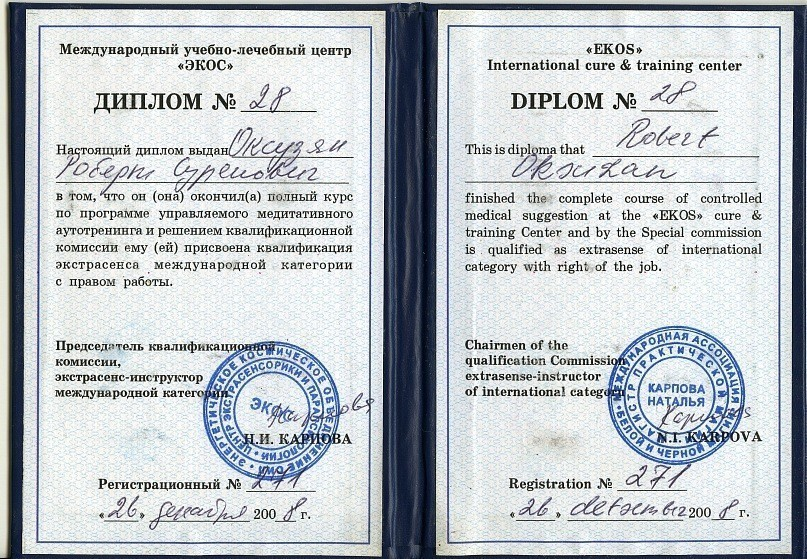 Международный учебно-лечебный центр
«ЭКОС»
ДИПЛОМ № 28
Настоящий диплом выдан Оксузян
Роберт Суренович
в том, что он (она) окончил(а) полный курс
по программе управляемого медитативного
аутотренинга и решением квалификационной
комиссии ему (ей) присвоена квалификация
экстрасенса международной категории
с правом работы.
Председатель квалификационной
комиссии,
экстрасенс-инструктор
международной категории
Н.И. КАРПОВА
ЭНЕРГЕТИЧЕСКОЕ КОСМИЧЕСКОЕ ОБЪЕДИНЕНИЕ
ЦЕНТР ЭКСТРАСЕНСОРИКИ И ПАРАПСИХОЛОГИИ
ЭКОС
Регистрационный № 271
«26» декабря 2008 г.
«EKOS»
International cure & training center
DIPLOM № 28
This is diploma that Robert
Oksuzan
finished the complete course of controlled
medical suggestion at the «EKOS» cure &
training Center and by the Special commission
is qualified as extrasense of international
category with right of the job.
Chairmen of the
qualification Commission,
extrasense-instructor
of international category
N.I. KARPOVA
МЕЖДУНАРОДНАЯ АССОЦИАЦИЯ
БЕЛОЙ И ЧЕРНОЙ МАГИИ
МАГИСТР ПРАКТИЧЕСКОЙ
КАРПОВА
НАТАЛЬЯ
Registration № 271
«26» 2008 г.